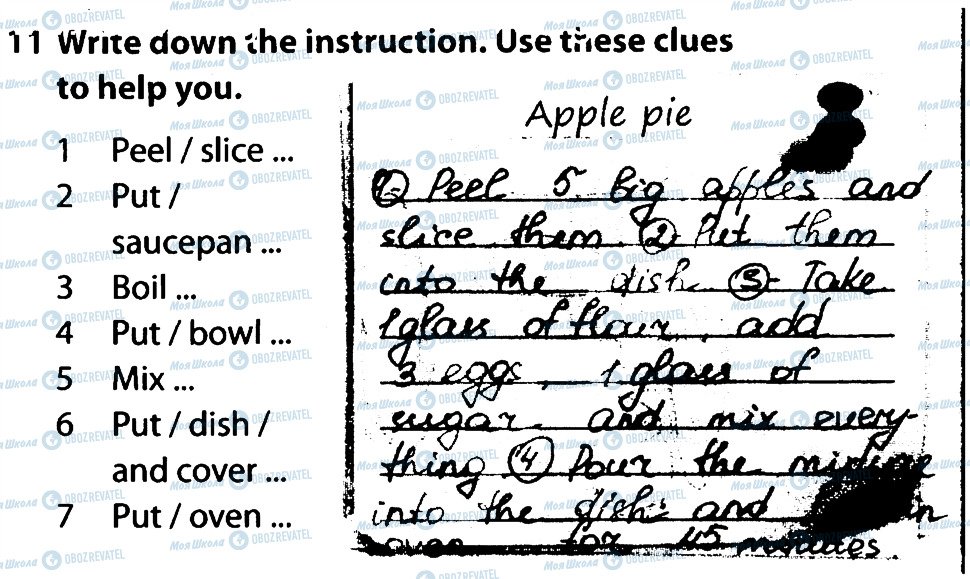 11 Write down the instruction. Use these clues
to help you.
1 Peel / slice ...
2 Put /
saucepan ...
3 Boil ...
4 Put / bowl ...
5 Mix ...
6 Put / dish /
and cover ...
7 Put / oven ...
Apple pie
① Peel 5 big apples and
slice them. ② Put them
into the dish ③ Take
1 glass of flour, add
3 eggs, 1 glass of
sugar and mix every-
thing ④ Pour the mixture
into the dish and
oven for 45 minutes.
Моя Школа OBOZREVATEL